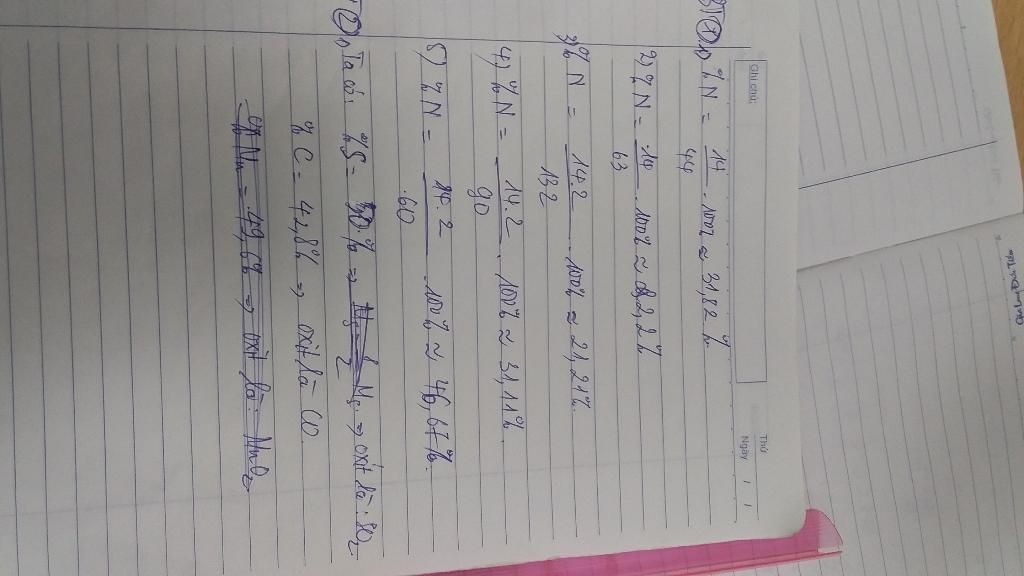 Ghi chú:
Thứ
Ngày / /
BT ① 1) % N = 14/44 . 100% ≈ 31,82 %
2) % N = 14/63 . 100% ≈ 22,2 %
3) % N = 14.2/132 . 100% ≈ 21,21%.
4) % N = 14.2/90 . 100% ≈ 31,11%.
5) % N = 14.2/60 . 100% ≈ 46,67%.
② 1) Ta có: % S = 50% => => oxit là: SO2
% C = 42,8% => oxit là CO
% Mn = 49,6% => oxit là: MnO2